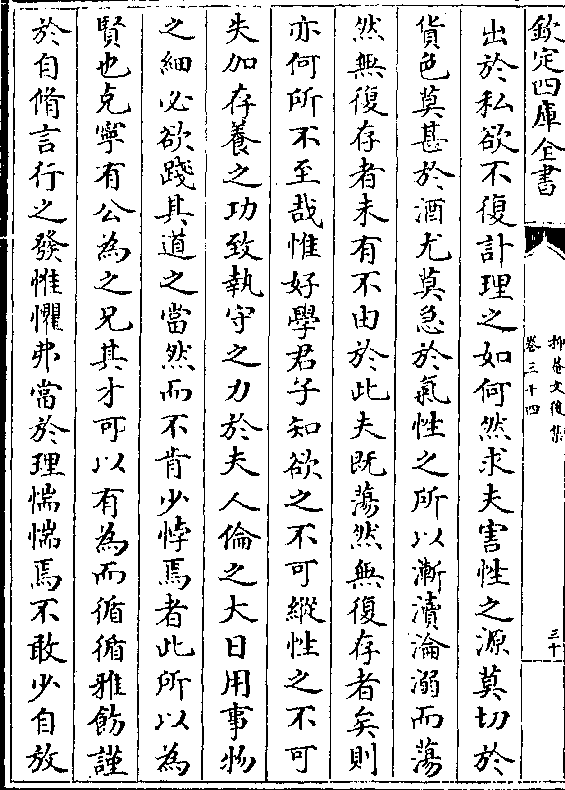 欽定四庫全書
抑菴文後集
卷三十四
三十
出於私欲不復計理之如何然求夫害性之源莫切於
貨色莫甚於酒尤莫急於氣性之所以漸漬淪溺而蕩
然無復存者未有不由於此夫既蕩然無復存者矣則
亦何所不至哉惟好學君子知欲之不可縱性之不可
失加存養之功致執守之力於夫人倫之大日用事物
之細必欲踐其道之當然而不肯少悖焉者此所以為
賢也克寧有公為之兄其才可以有為而循循雅飭謹
於自脩言行之發惟懼弗當於理惴惴焉不敢少自放